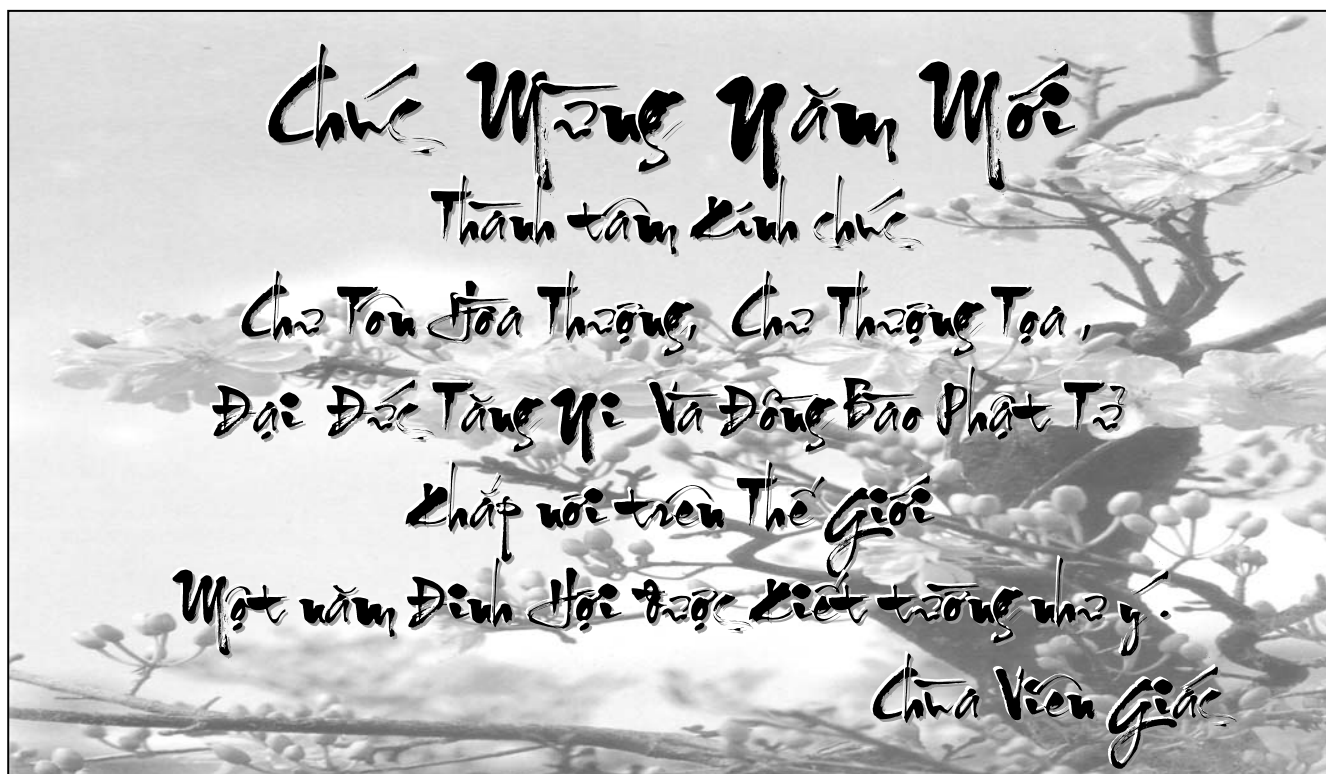 Chúc Mừng Năm Mới
Thành tâm Kính chúc
Chư Tôn Hòa Thượng, Chư Thượng Tọa ,
Đại Đức Tăng Ni Và Đồng Bào Phật Tử
Khắp nơi trên Thế Giới
Một năm Đinh Hợi được Kiết tường như ý .
Chùa Viên Giác